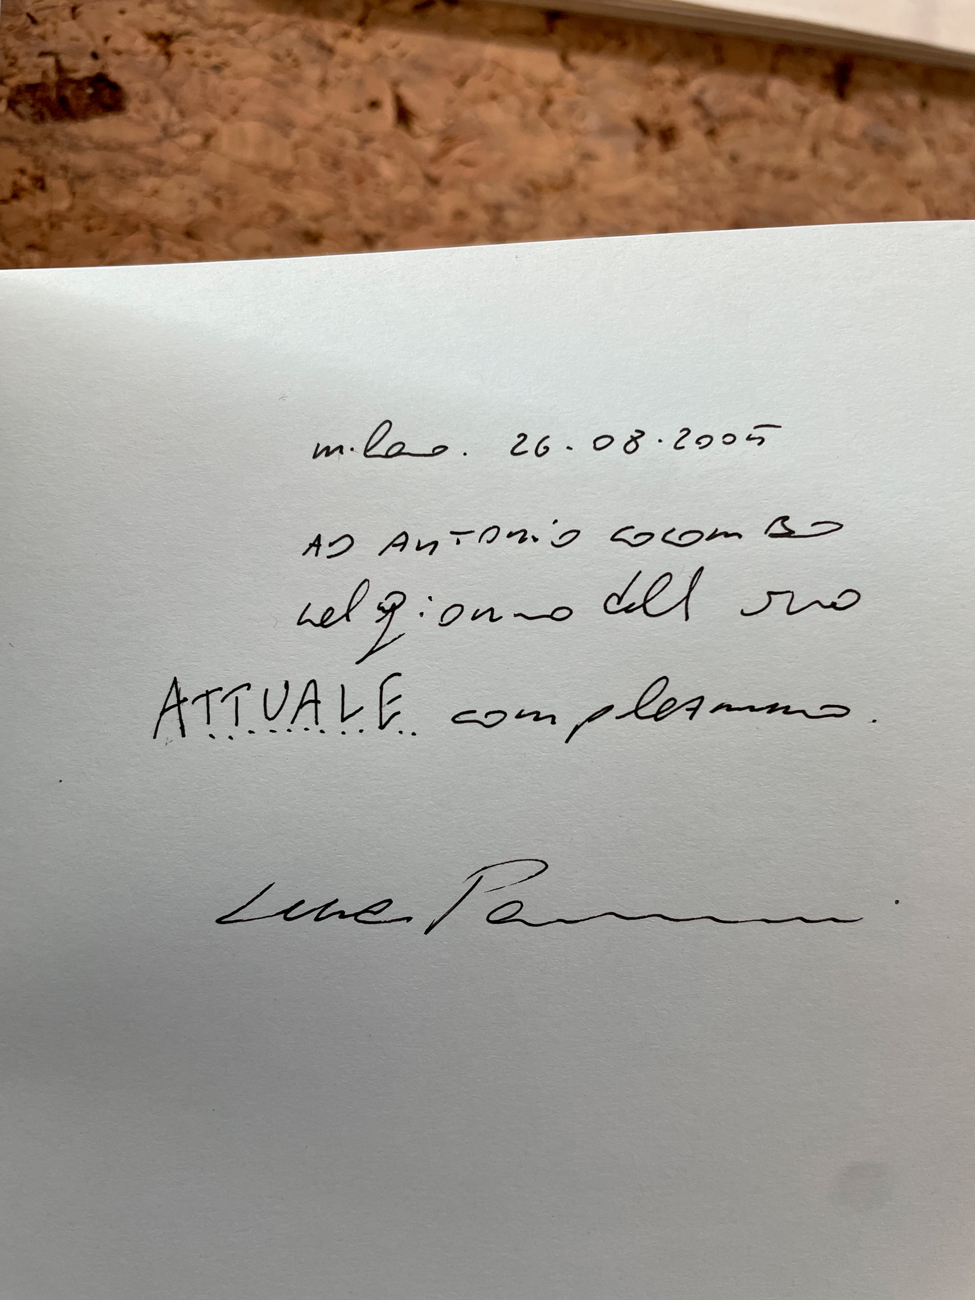 milano. 26.08.2005
AD ANTONIO COLOMBO
nel giorno del suo
ATTUALE compleanno.
Luca